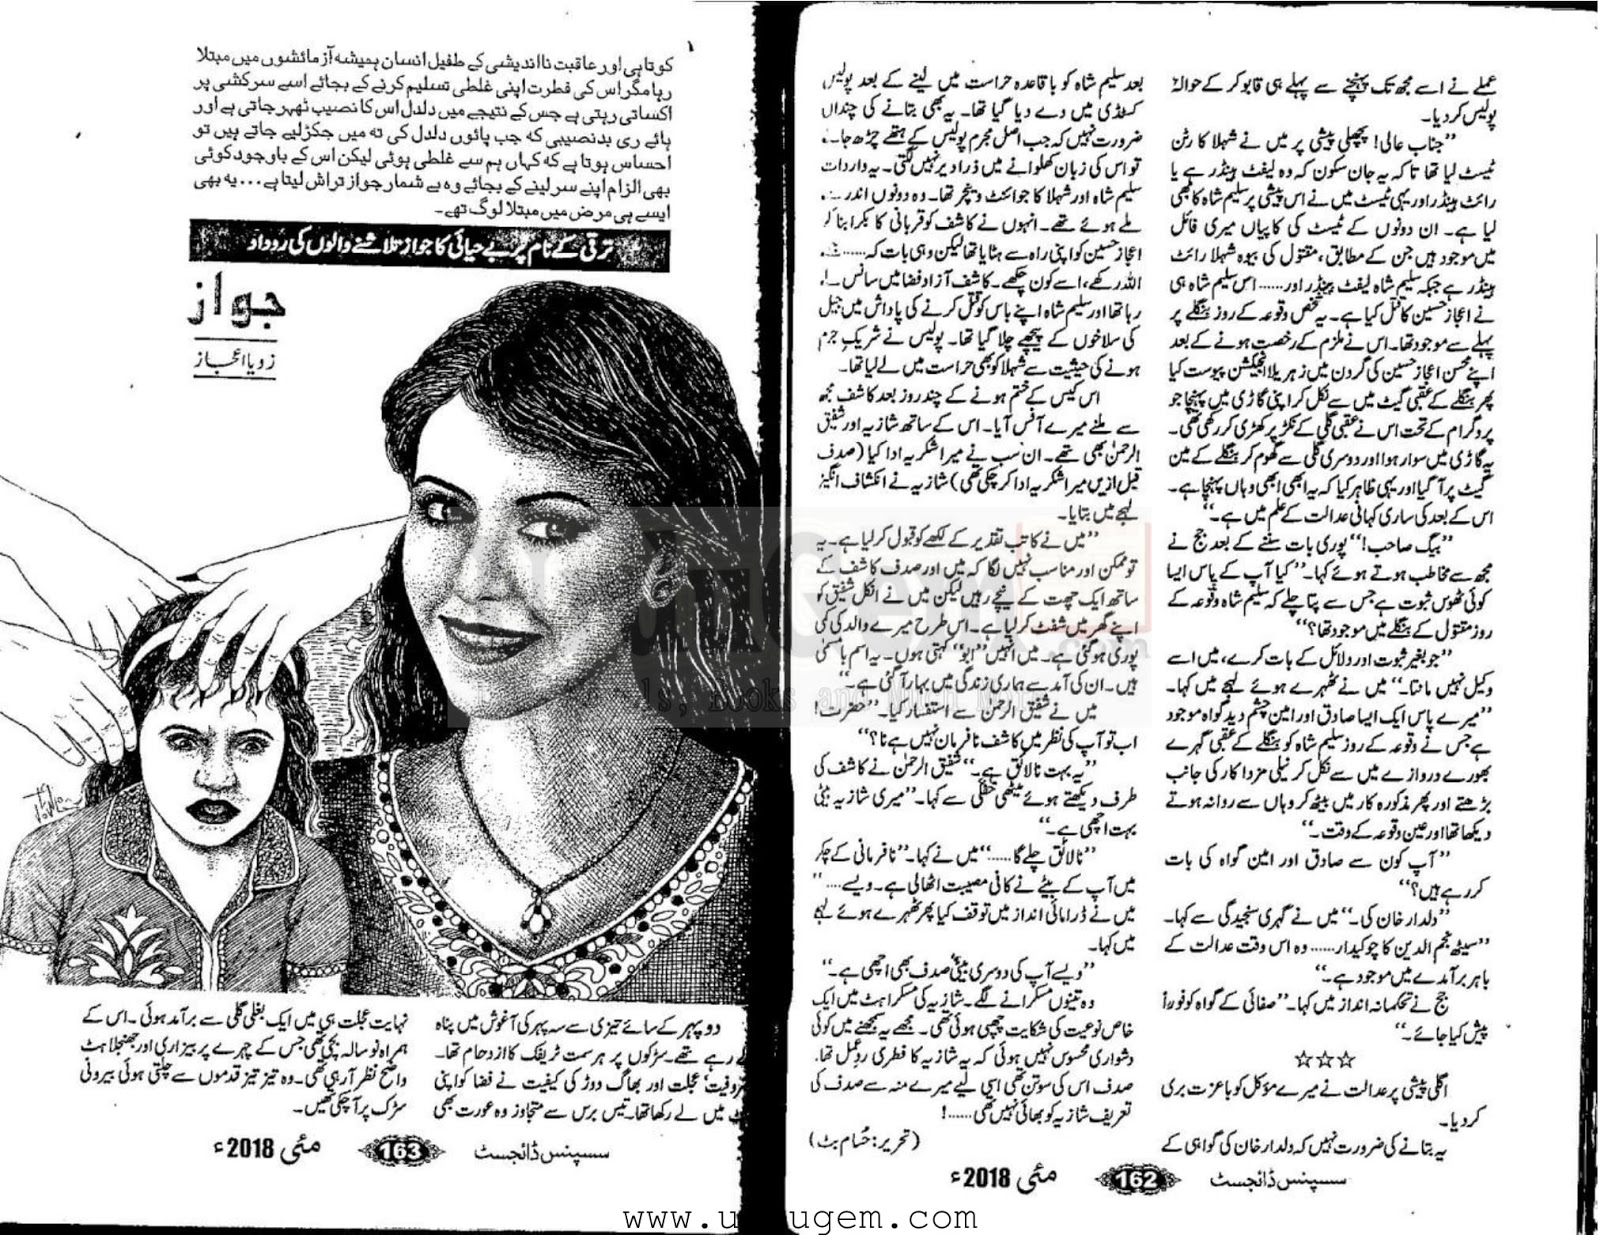 عملے نے اسے مجھ تک پہنچنے سے پہلے ہی قابو کر کے حوالۂ
پولیس کر دیا۔
”جناب عالی! پچھلی پیشی پر میں نے شہلا کا رٹن
ٹیسٹ لیا تھا تاکہ یہ جان سکوں کہ وہ لیفٹ ہینڈر ہے یا
رائٹ ہینڈر اور یہی ٹیسٹ میں نے اس پیشی پر سلیم شاہ کا بھی
لیا ہے۔ ان دونوں کے ٹیسٹ کی کاپیاں میری فائل
میں موجود ہیں جن کے مطابق، مقتول کی بیوہ شہلا رائٹ
ہینڈر ہے جبکہ سلیم شاہ لیفٹ ہینڈر اور...... اس سلیم شاہ ہی
نے اعجاز حسین کا قتل کیا ہے۔ یہ شخص وقوعہ کے روز بنگلے پر
پہلے سے موجود تھا۔ اس نے ملزم کے رخصت ہونے کے بعد
اپنے محسن اعجاز حسین کی گردن میں زہریلا انجکشن پیوست کیا
پھر بنگلے کے عقبی گیٹ میں سے نکل کر اپنی گاڑی میں پہنچا جو
پروگرام کے تحت اس نے عقبی گلی کے نکڑ پر کھڑی کر رکھی تھی۔
یہ گاڑی میں سوار ہوا اور دوسری گلی سے گھوم کر بنگلے کے مین
گیٹ پر آ گیا اور یہی ظاہر کیا کہ یہ ابھی ابھی وہاں پہنچا ہے۔
اس کے بعد کی ساری کہانی عدالت کے علم میں ہے۔“
”بیگ صاحب!“ پوری بات سننے کے بعد جج نے
مجھ سے مخاطب ہوتے ہوئے کہا۔ ”کیا آپ کے پاس ایسا
کوئی ٹھوس ثبوت ہے جس سے پتا چلے کہ سلیم شاہ وقوعہ کے
روز مقتول کے بنگلے میں موجود تھا؟“
”جو بغیر ثبوت اور دلائل کے بات کرے، میں اسے
وکیل نہیں مانتا۔“ میں نے ٹھہرے ہوئے لہجے میں کہا۔
”میرے پاس ایک ایسا صادق اور امین چشم دید گواہ موجود
ہے جس نے وقوعہ کے روز سلیم شاہ کو بنگلے کے عقبی گہرے
بھورے دروازے میں سے نکل کر نیلی مزدا کار کی جانب
بڑھتے اور پھر مذکورہ کار میں بیٹھ کر وہاں سے روانہ ہوتے
دیکھا تھا اور عین وقوعہ کے وقت۔“
”آپ کون سے صادق اور امین گواہ کی بات
کر رہے ہیں؟“
”دلدار خان کی۔“ میں نے گہری سنجیدگی سے کہا۔
”سیٹھ نجم الدین کا چوکیدار...... وہ اس وقت عدالت کے
باہر برآمدے میں موجود ہے۔“
جج نے تحکمانہ انداز میں کہا۔ ”صفائی کے گواہ کو فوراً
پیش کیا جائے۔“
☆☆☆
اگلی پیشی پر عدالت نے میرے مؤکل کو باعزت بری
کر دیا۔
یہ بتانے کی ضرورت نہیں کہ دلدار خان کی گواہی کے
بعد سلیم شاہ کو باقاعدہ حراست میں لینے کے بعد پولیس
کسٹڈی میں دے دیا گیا تھا۔ یہ بھی بتانے کی چنداں
ضرورت نہیں کہ جب اصل مجرم پولیس کے ہتھے چڑھ جائے
تو اس کی زبان کھلوانے میں ذرا دیر نہیں لگتی۔ یہ واردات
سلیم شاہ اور شہلا کا جوائنٹ وینچر تھا۔ وہ دونوں اندر سے
ملے ہوئے تھے۔ انہوں نے کاشف کو قربانی کا بکرا بنا کر
اعجاز حسین کو اپنی راہ سے ہٹایا تھا لیکن وہی بات کہ......
اللہ رکھے، اسے کون چکھے۔ کاشف آزاد فضا میں سانس لے
رہا تھا اور سلیم شاہ اپنے باس کو قتل کرنے کی پاداش میں جیل
کی سلاخوں کے پیچھے چلا گیا تھا۔ پولیس نے شریکِ جرم
ہونے کی حیثیت سے شہلا کو بھی حراست میں لے لیا تھا۔
اس کیس کے ختم ہونے کے چند روز بعد کاشف مجھ
سے ملنے میرے آفس آیا۔ اس کے ساتھ شازیہ اور شفیق
الرحمٰن بھی تھے۔ ان سب نے میرا شکریہ ادا کیا (صدف
قبل ازیں میرا شکریہ ادا کر چکی تھی) شازیہ نے انکشاف انگیز
لہجے میں بتایا۔
”میں نے کاتب تقدیر کے لکھے کو قبول کر لیا ہے۔ یہ
تو ممکن اور مناسب نہیں لگا کہ میں اور صدف کاشف کے
ساتھ ایک چھت کے نیچے رہیں لیکن میں نے انکل شفیق کو
اپنے گھر میں شفٹ کر لیا ہے۔ اس طرح میرے والد کی کمی
پوری ہو گئی ہے۔ میں انہیں ”ابو“ کہتی ہوں۔ یہ اسم بامسمیٰ
ہیں۔ ان کی آمد سے ہماری زندگی میں بہار آ گئی ہے۔“
میں نے شفیق الرحمٰن سے استفسار کیا۔ ”حضرت!
اب تو آپ کی نظر میں کاشف نافرمان نہیں ہے نا؟“
”یہ بہت نالائق ہے۔“ شفیق الرحمٰن نے کاشف کی
طرف دیکھتے ہوئے میٹھی خفگی سے کہا۔ ”میری شازیہ بیٹی
بہت اچھی ہے۔“
”نالائق چلے گا......“ میں نے کہا۔ ”نافرمانی کے چکر
میں آپ کے بیٹے نے کافی مصیبت اٹھالی ہے۔ ویسے....“
میں نے ڈرامائی انداز میں توقف کیا پھر ٹھہرے ہوئے لہجے
میں کہا۔
”ویسے آپ کی دوسری بیٹی صدف بھی اچھی ہے۔“
وہ تینوں مسکرانے لگے۔ شازیہ کی مسکراہٹ میں ایک
خاص نوعیت کی شکایت چھپی ہوئی تھی۔ مجھے یہ سمجھنے میں کوئی
دشواری محسوس نہیں ہوئی کہ یہ شازیہ کا فطری ردِعمل تھا۔
صدف اس کی سوتن تھی اسی لیے میرے منہ سے صدف کی
تعریف شازیہ کو بھائی نہیں تھی......!
(تحریر: حُسام بٹ)
سسپنس ڈائجسٹ 162 مئی 2018ء
کوتاہی اور عاقبت نااندیشی کے طفیل انسان ہمیشہ آزمائشوں میں مبتلا
رہا مگر اس کی فطرت اپنی غلطی تسلیم کرنے کے بجائے اسے سرکشی پر
اکساتی رہتی ہے جس کے نتیجے میں دلدل اس کا نصیب ٹھہر جاتی ہے اور
ہائے ری بدنصیبی کہ جب پائوں دلدل کی تہ میں جکڑ لیے جاتے ہیں تو
احساس ہوتا ہے کہ کہاں ہم سے غلطی ہوئی لیکن اس کے باوجود کوئی
بھی الزام اپنے سر لینے کے بجائے وہ بے شمار جواز تراش لیتا ہے... یہ بھی
ایسے ہی مرض میں مبتلا لوگ تھے۔
ترقی کے نام پر بے حیائی کا جواز تلاشنے والوں کی روداد
جواز
زویا اعجاز
دوپہر کے سائے تیزی سے سہ پہر کی آغوش میں پناہ
لے رہے تھے۔ سڑکوں پر ہر سمت ٹریفک کا ازدحام تھا۔
مصروفیت، عجلت اور بھاگ دوڑ کی کیفیت نے فضا کو اپنی
میں لے رکھا تھا۔ تیس برس سے متجاوز وہ عورت بھی
نہایت عجلت ہی میں ایک بغلی گلی سے برآمد ہوئی۔ اس کے
ہمراہ نو سالہ بچی تھی جس کے چہرے پر بیزاری اور جھنجلاہٹ
واضح نظر آ رہی تھی۔ وہ تیز تیز قدموں سے چلتی ہوئی بیرونی
سڑک پر آ چکی تھیں۔
سسپنس ڈائجسٹ 163 مئی 2018ء